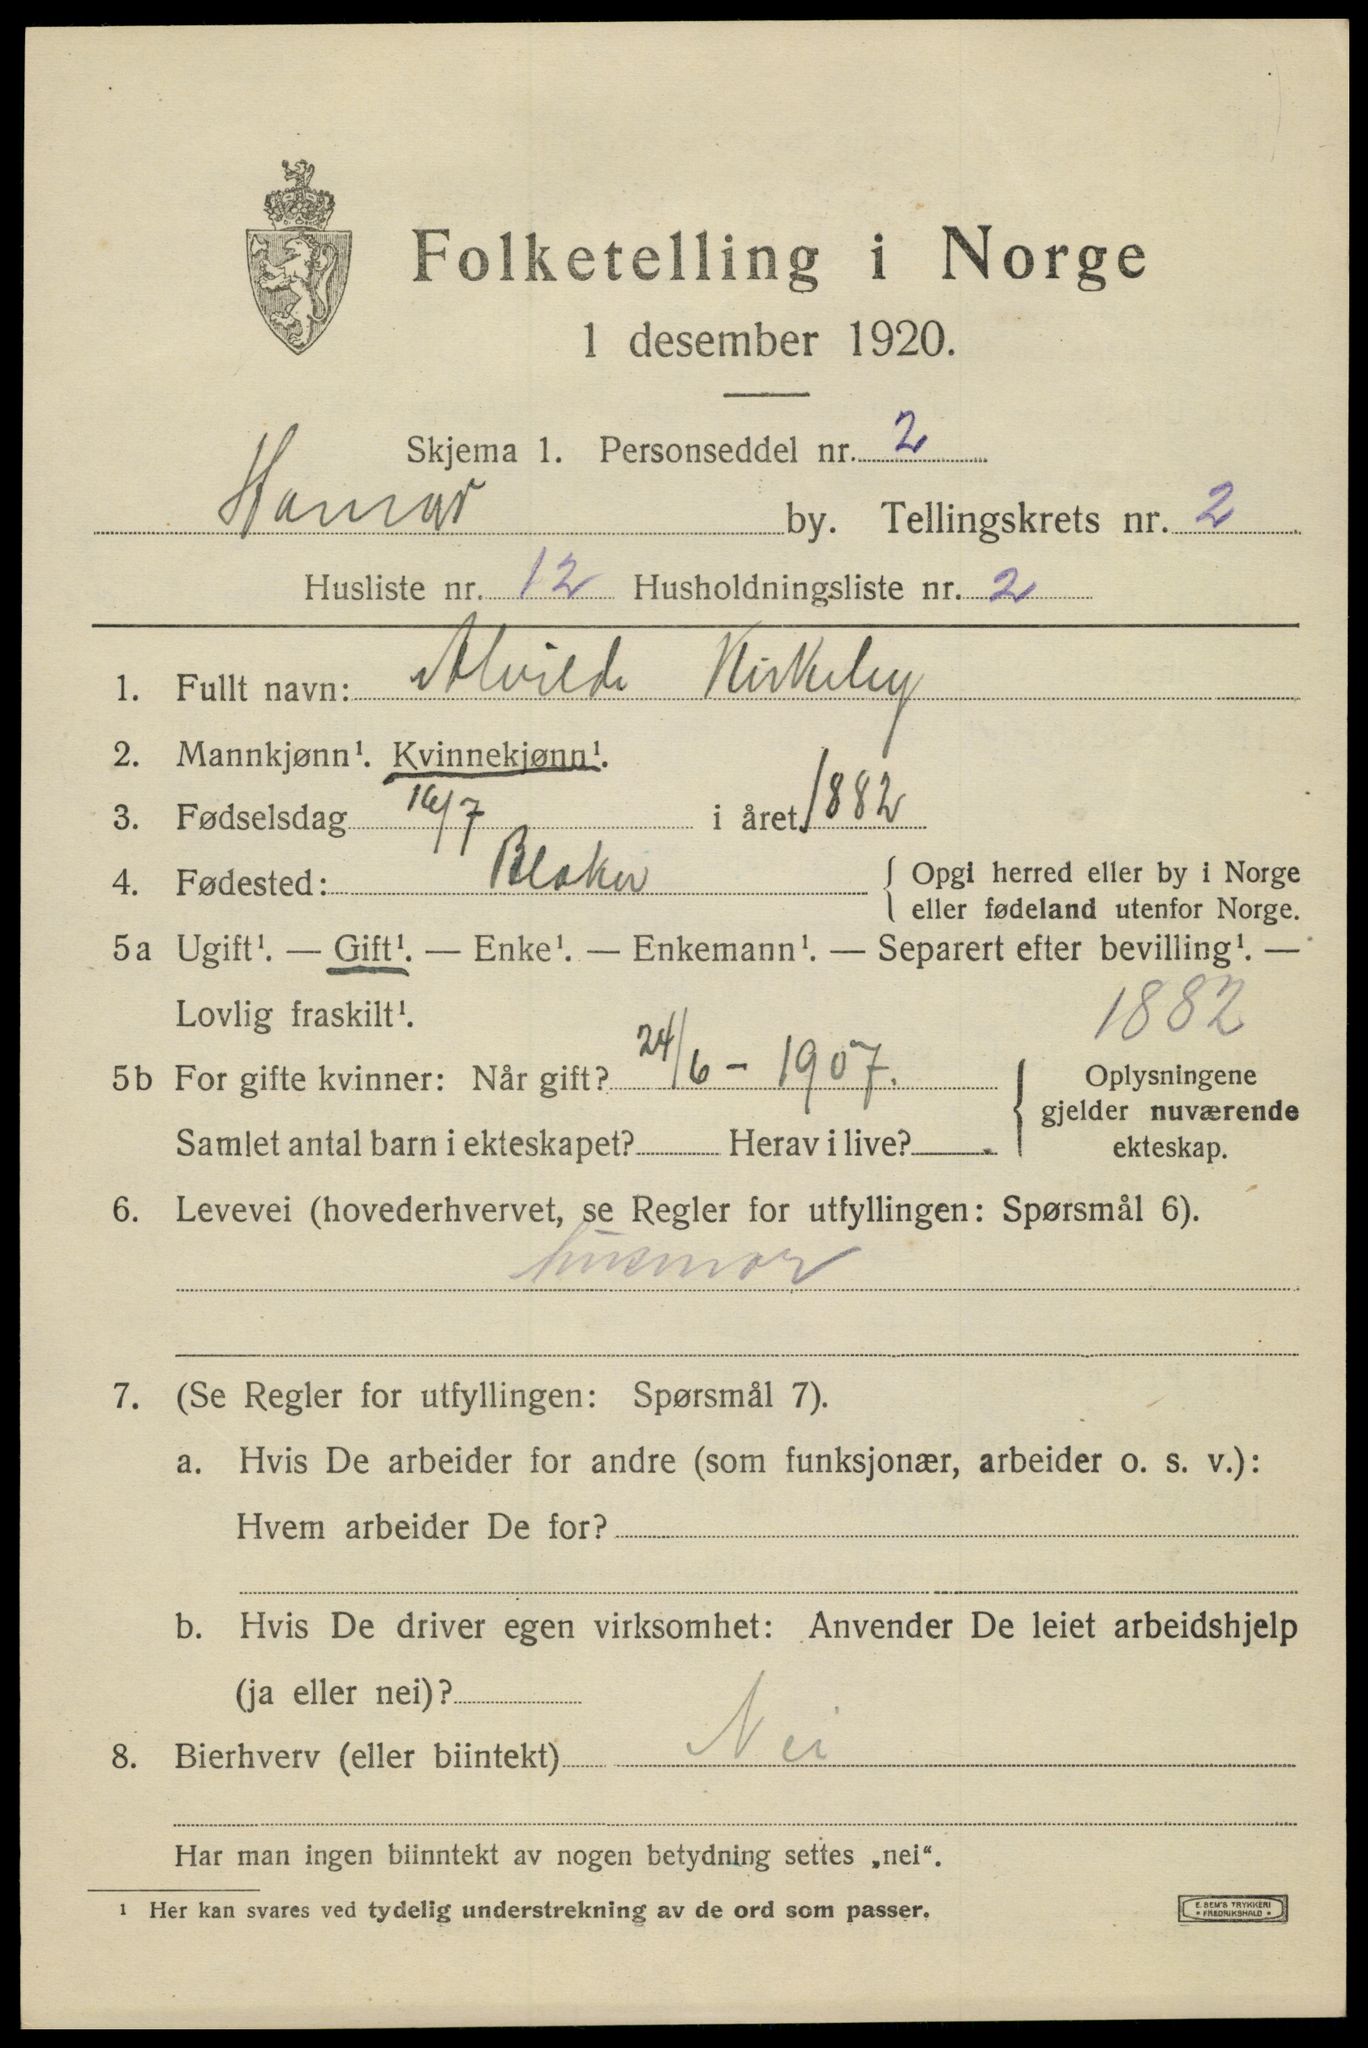 Folketelling i Norge
1 desember 1920.
Skjema 1. Personseddel nr. 2
Hamar by. Tellingskrets nr. 2
Husliste nr. 12 Husholdningsliste nr. 2
1. Fullt navn: Alvilde Kirkeby
2. Mannkjønn¹. Kvinnekjønn¹.
3. Fødselsdag 16/7 i året 1882
4. Fødested: Blaker { Opgi herred eller by i Norge
eller fødeland utenfor Norge.
5a Ugift¹. — Gift¹. — Enke¹. — Enkemann¹. — Separert efter bevilling¹. —
Lovlig fraskilt¹. 1882
5b For gifte kvinner: Når gift? 24/6 - 1907.
Samlet antal barn i ekteskapet? Herav i live?
{ Oplysningene
gjelder nuværende
ekteskap.
6. Levevei (hovederhvervet, se Regler for utfyllingen: Spørsmål 6).
husmor
7. (Se Regler for utfyllingen: Spørsmål 7).
a. Hvis De arbeider for andre (som funksjonær, arbeider o. s. v.):
Hvem arbeider De for?
b. Hvis De driver egen virksomhet: Anvender De leiet arbeidshjelp
(ja eller nei)?
8. Bierhverv (eller biintekt) Nei
Har man ingen biinntekt av nogen betydning settes „nei“.
¹ Her kan svares ved tydelig understrekning av de ord som passer.
E. SEM'S TRYKKERI
* FREDRIKSHALD *